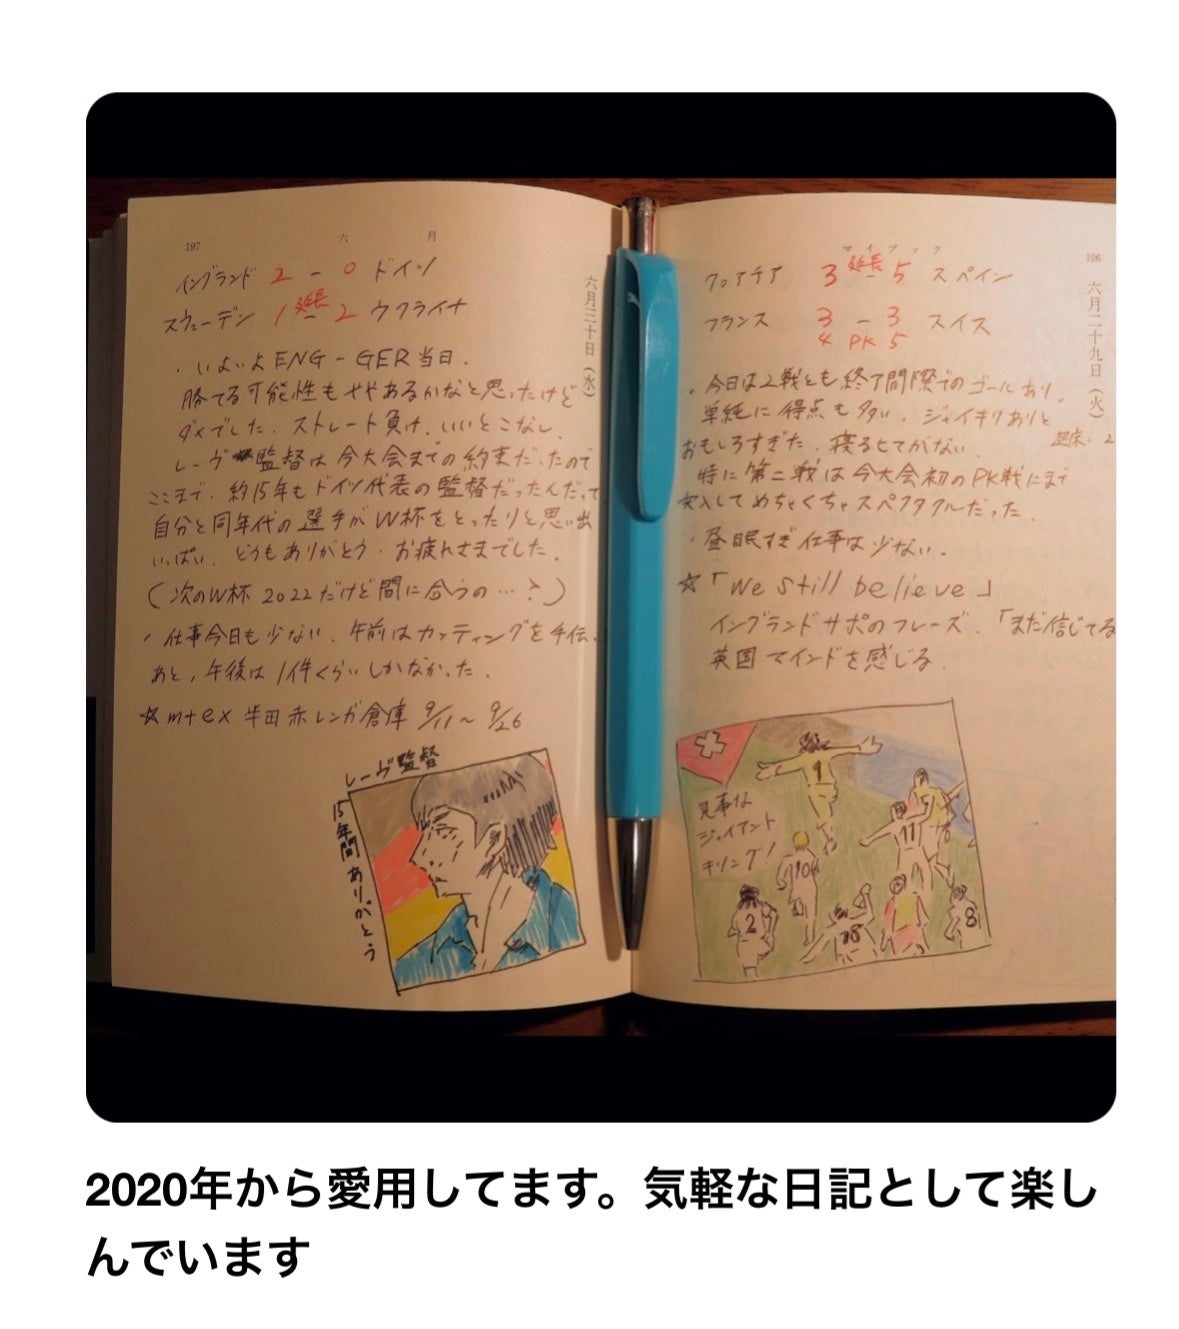 197
六 月
六月三十日(水)
イングランド 2 - 0 ドイツ
スウェーデン 1 延長 - 2 ウクライナ
・いよいよENG-GER当日.
勝てる可能性もややあるかなと思ったけど
ダメでした. ストレート負け、いいとこなし.
レーヴ監督は今大会までの約束だったので
ここまで. 約15年もドイツ代表の監督だったんだって
自分と同年代の選手がW杯をとったりと思い出
いっぱい. どうもありがとう. お疲れさまでした.
(次のW杯 2022だけど間に合うの…?)
・仕事今日も少ない. 午前はカッティングを手伝
あと, 午後は1件くらいしかなかった.
☆mtex 半田赤レンガ倉庫 9/11~9/26
レーヴ監督
15年間ありがとう
マイブック
196
六月二十九日(火)
クロアチア 3 延長 - 5 スペイン
フランス 3 - 3 スイス
4 PK 5
・今日は2戦とも終了間際でのゴールあり,
単純に得点も多い. ジャイキリありと
おもしろすぎた. 寝るヒマがない.
2
特に第二戦は今大会初のPK戦にまで
突入してめちゃくちゃスペクタクルだった.
・昼眠すぎ仕事は少ない.
☆「We still believe」
イングランドサポのフレーズ. 「まだ信じてる
英国マインドを感じる.
見事な
ジャイアント
キリング!
9
11
10
2
18
8
2020年から愛用してます。気軽な日記として楽し
んでいます